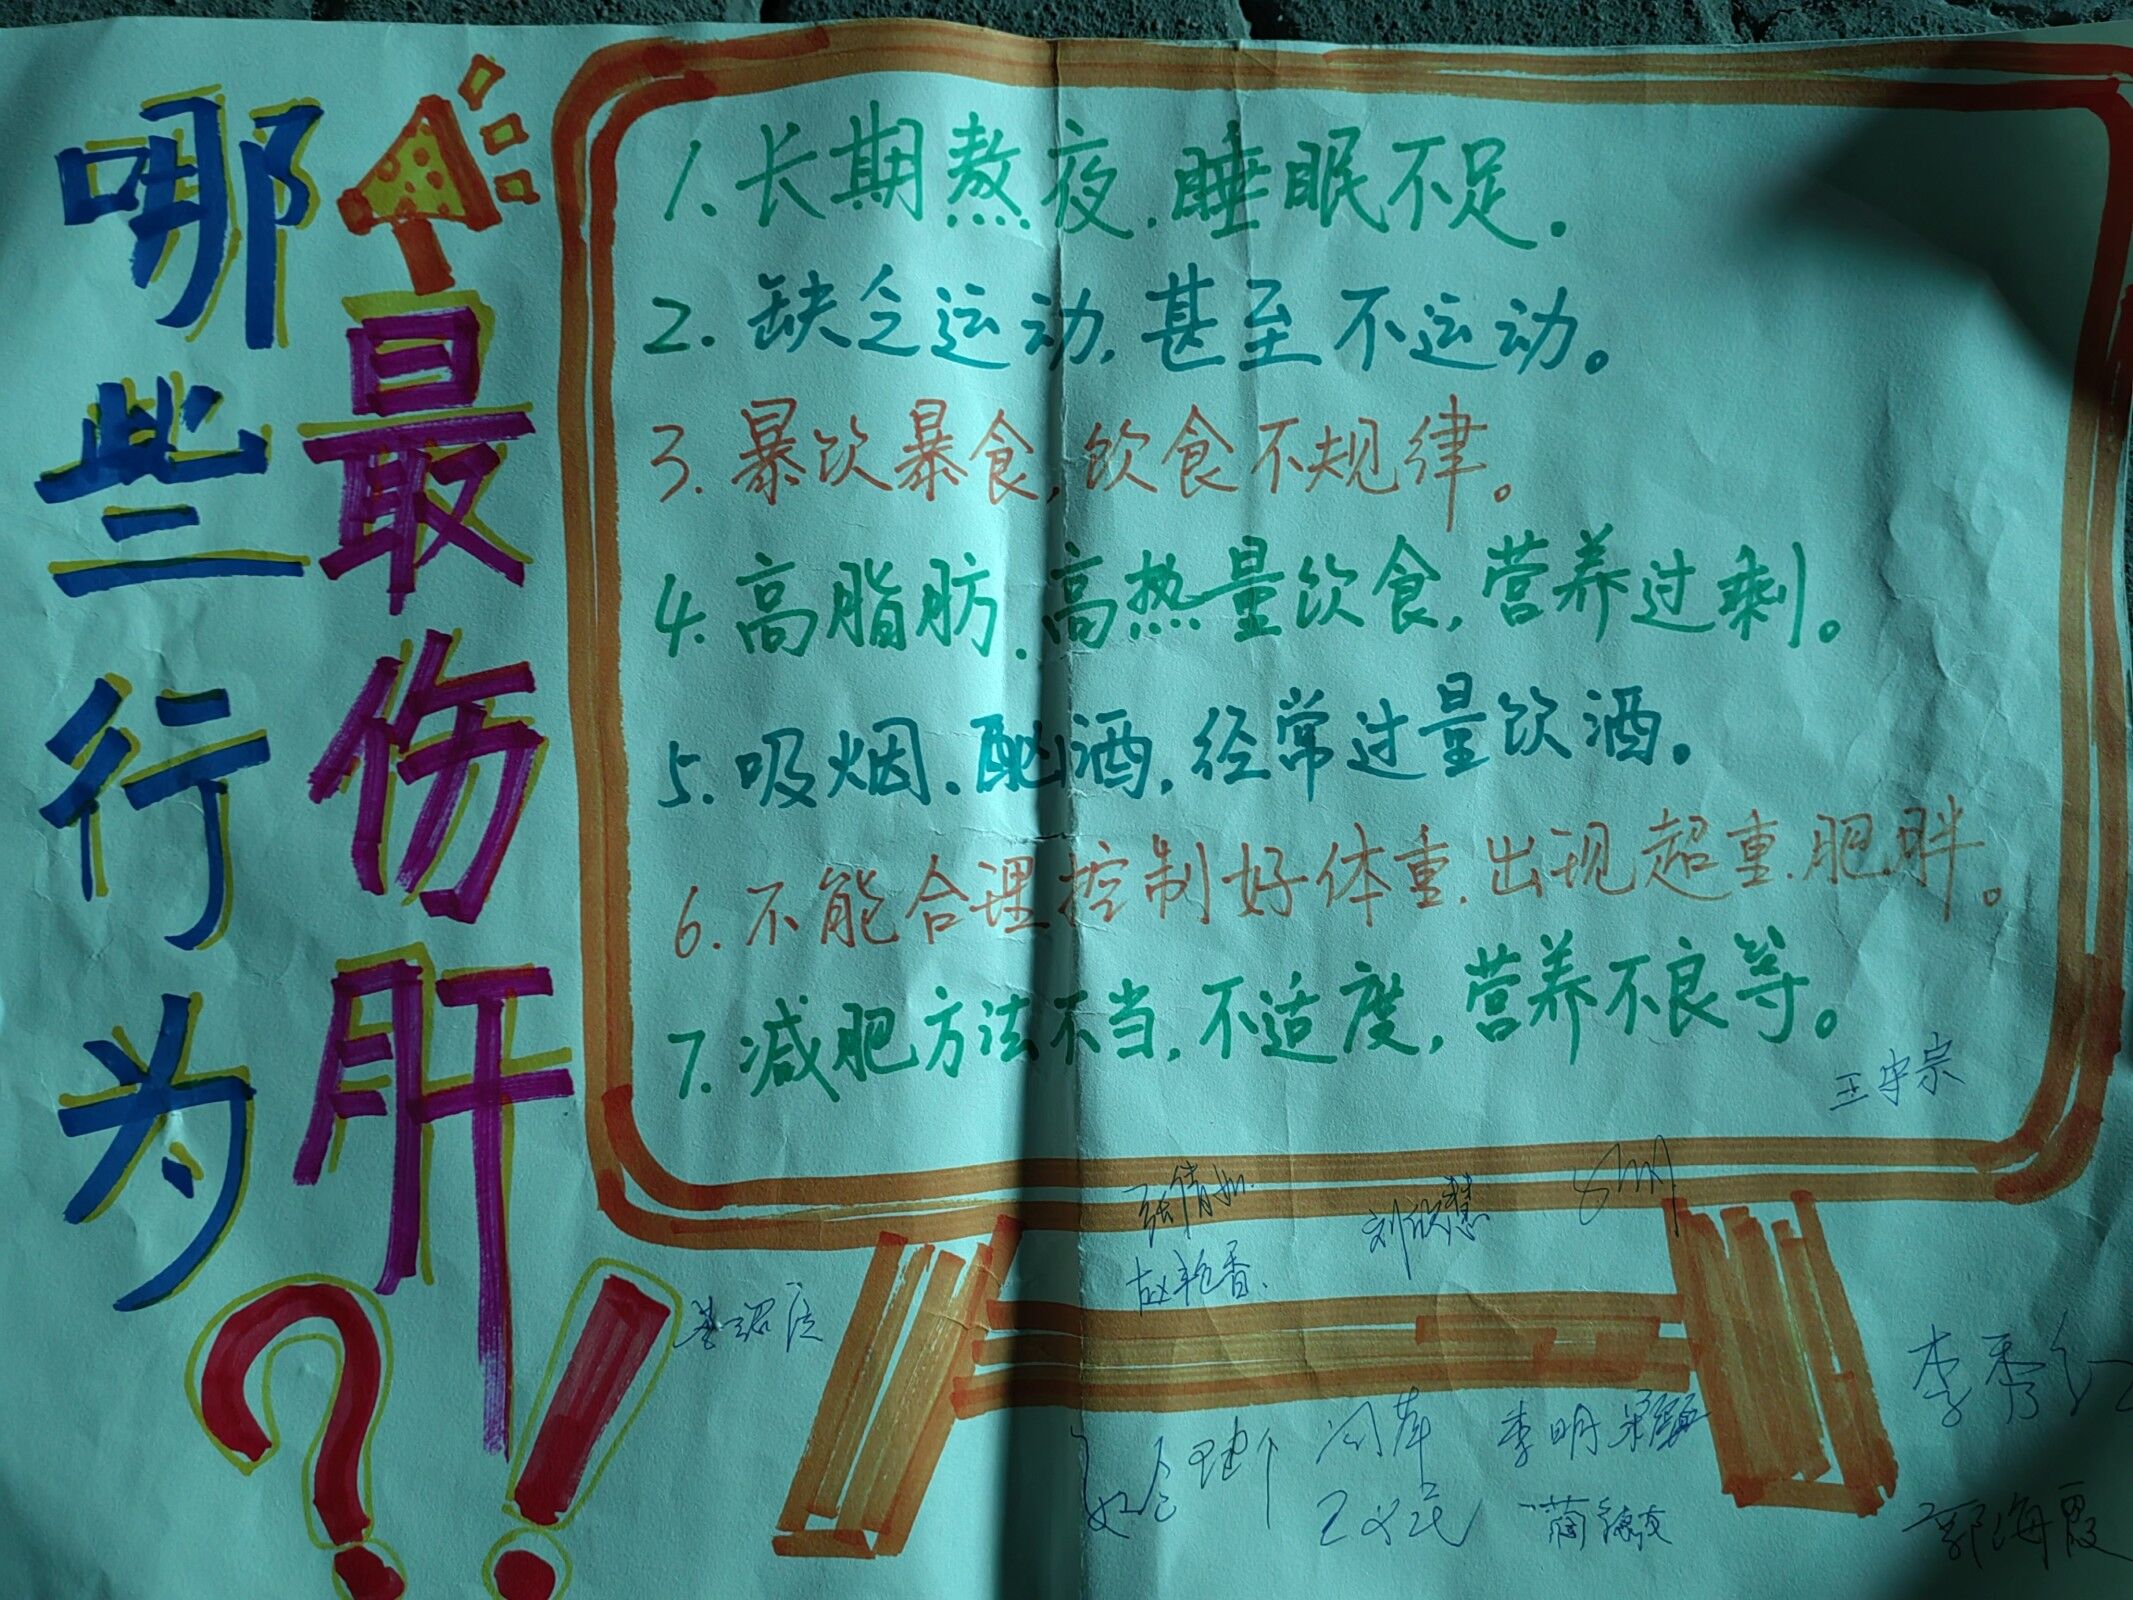 哪些行为
最伤肝
?!
1.长期熬夜.睡眠不足.
2.缺乏运动,甚至不运动。
3.暴饮暴食,饮食不规律。
4.高脂肪.高热量饮食,营养过剩。
5.吸烟.酗酒,经常过量饮酒。
6.不能合理控制好体重.出现超重.肥胖。
7.减肥方法不当,不适度,营养不良等。
王守宗
张倩如.
刘欣慧
赵艳香.
李秀红
闫萍
李明
郭海霞